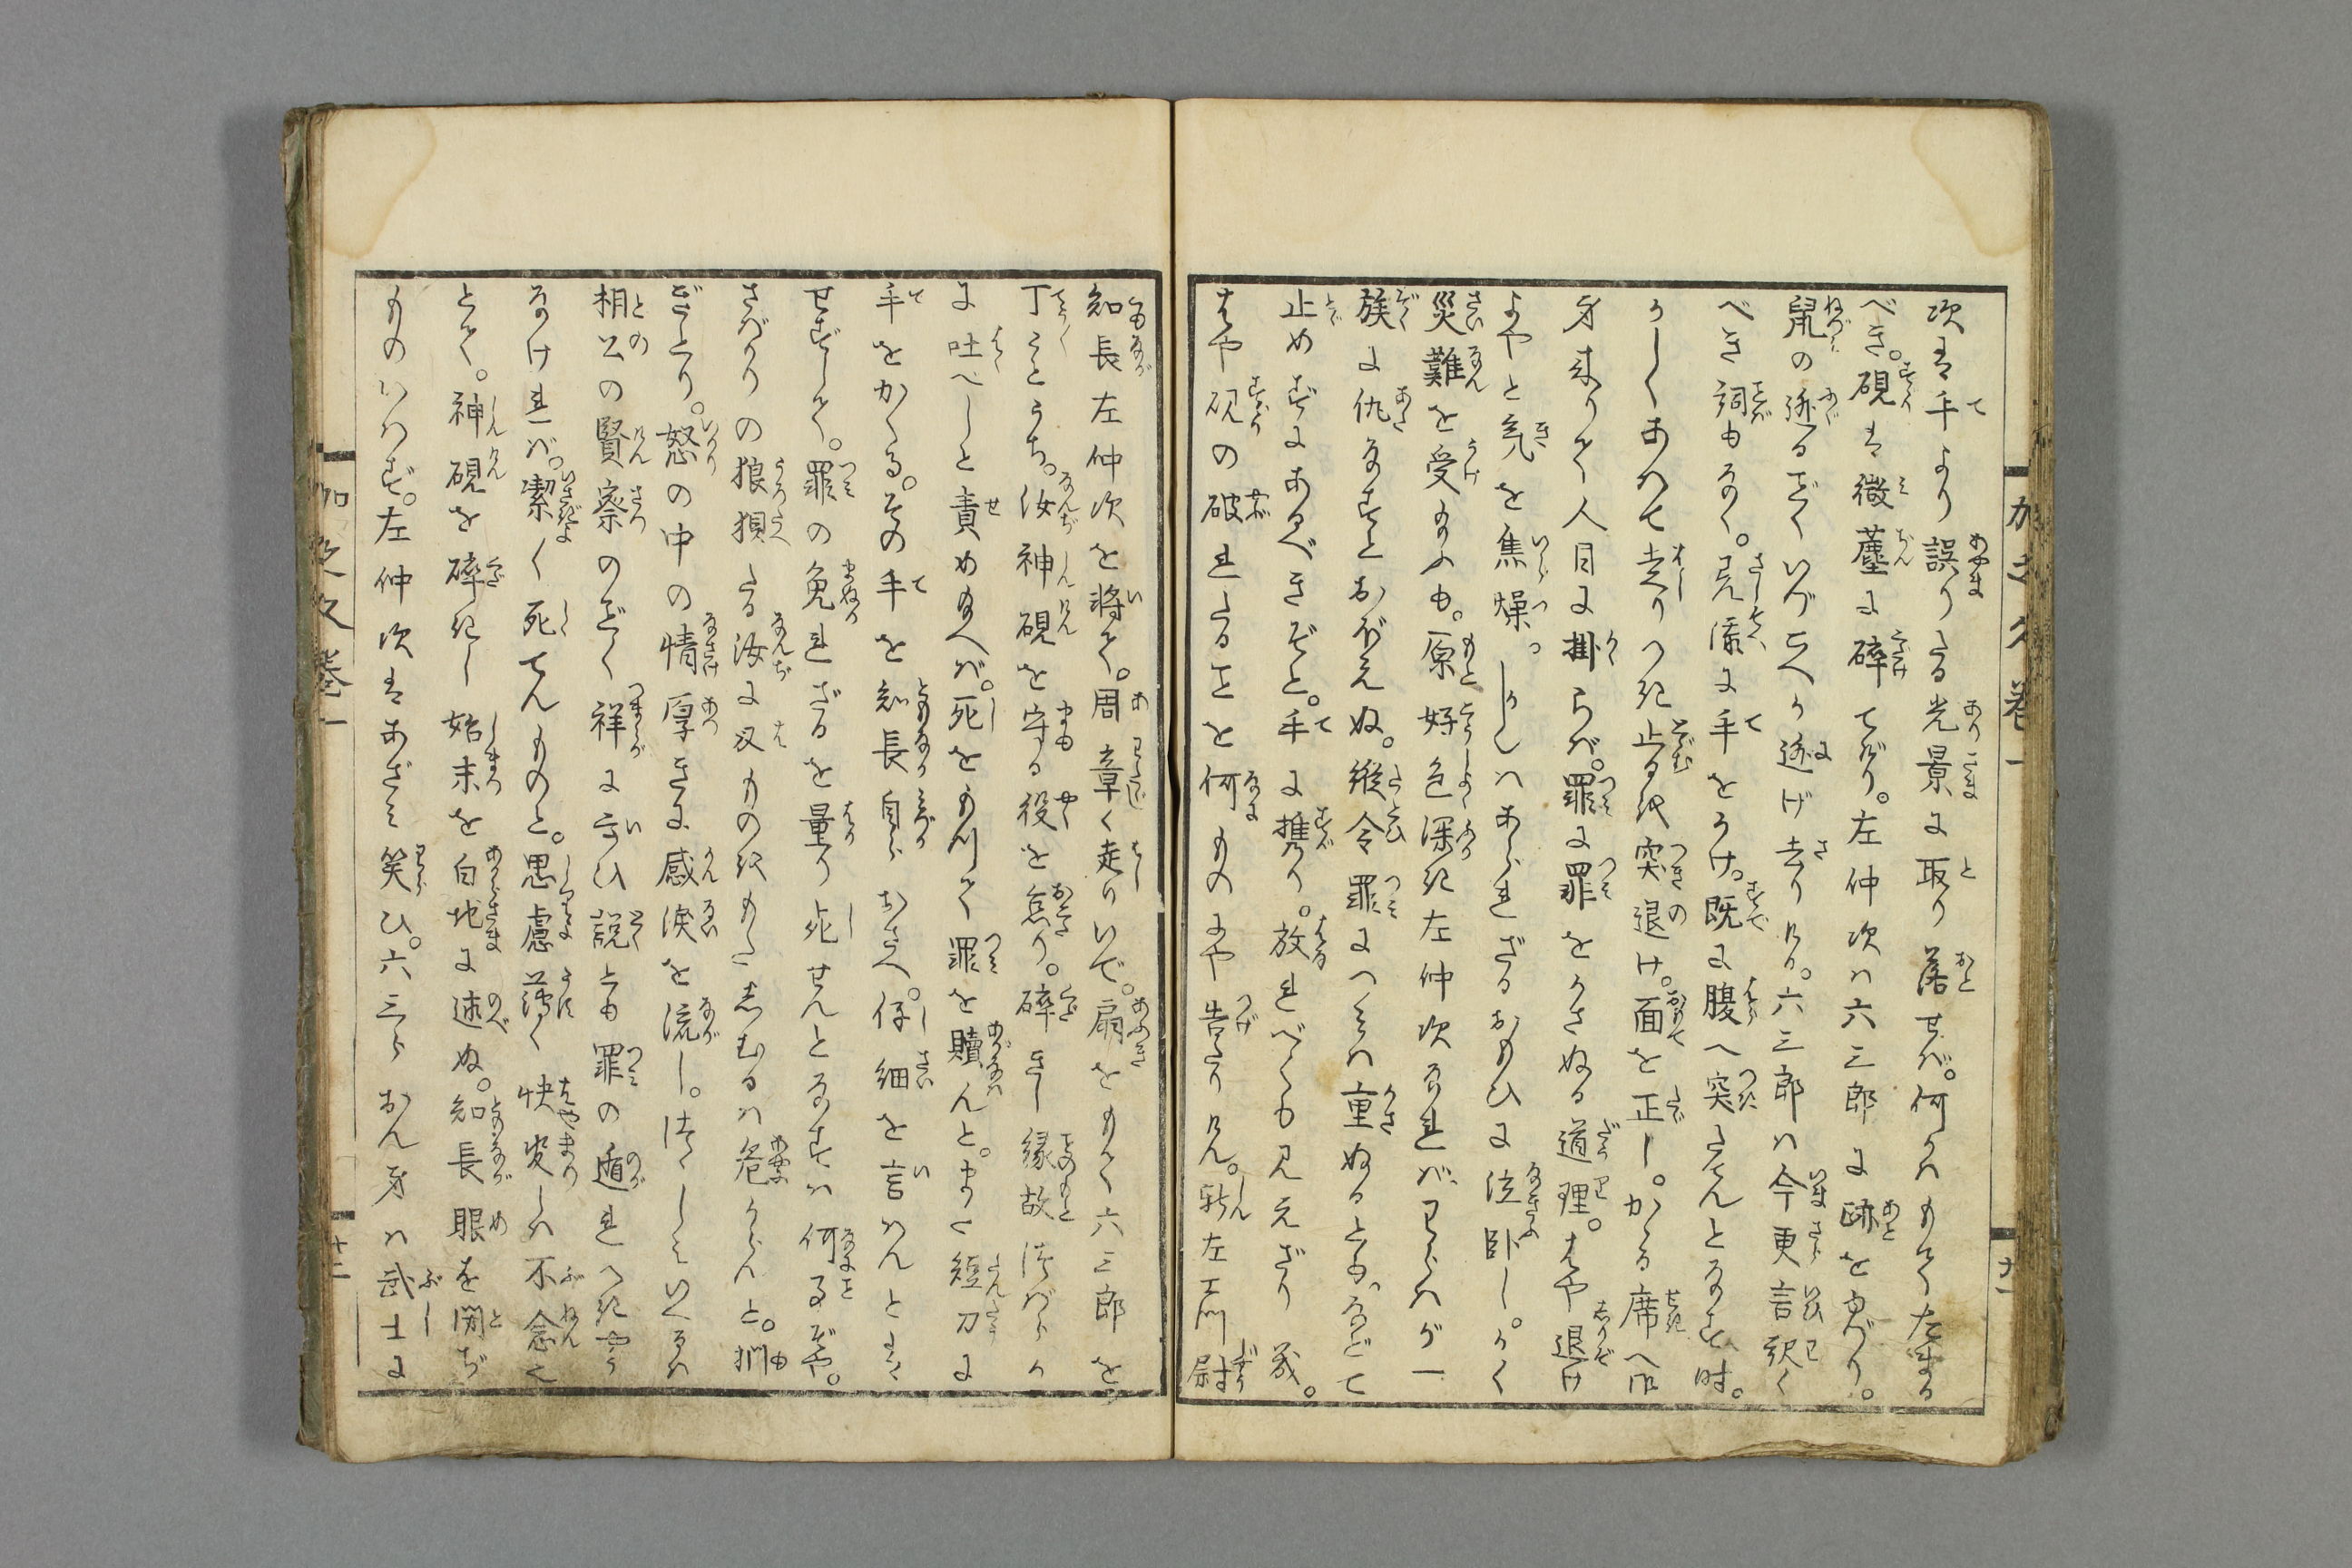 次は手より誤りたる光景に取り落せば。何かはもてたまる
べき。硯は微塵に碎けてげり。左仲次ハ六三郎に跡を見
鼠の迯るごとくいづこへか迯げ去りけり。六三郎ハ今更言釈く
べき詞もなく。見添に手をかけ。既に腹へ突たてんとなす時。
かしくあハて走りつき止るを突退け。面を正し。かゝる席へ
身来りて人目に掛らバ。罪に罪をかさぬる道理。はや退け
よやと気を焦燥つ。しかしハあられざるおもひに泣臥し。かく
災難を受給ふも。原好色深き左仲次なれバ、わらハが一
族に仇なすとおぼえぬ。縦令罪につミハ重ぬるとも。などて
止めずにあるべきぞと。手に携り。放れべくも見えざり鳧。
はや硯の破れたることを何ものにや告たりけん。新左エ門尉
知長左仲次を将て。周章く走りいで。扇をもて六三郎を
丁〳〵とうち。汝神硯を守る役を怠り。碎きし縁故つばらか
に吐へしと責め給へバ。死をもつて罪を贖んと。また短刀に
手をかくる。その手を知長自らおさへ。仔細を言ハんとは
せずして。罪の免れざるを量り死せんとなすハ何事ぞや。
さばかりの狼狽たる汝に又ものをもたしむるハ危からんと。
ぎとり。怒の中の情厚きに感涙を流し。つく〴〵しミいへるハ
相公の賢察のごとく祥に言ひ説とも罪の遁れへきやう
なけれバ。潔く死てんものと。思慮薄く快変しハ不念也
とて。神硯を碎きし始末を白地に述ぬ。知長眼を閉ぢ
ものいはず。左仲次はあざミ笑ひ。六三らおん身ハ武士に
加之久巻一
十一
加之久巻一
十二